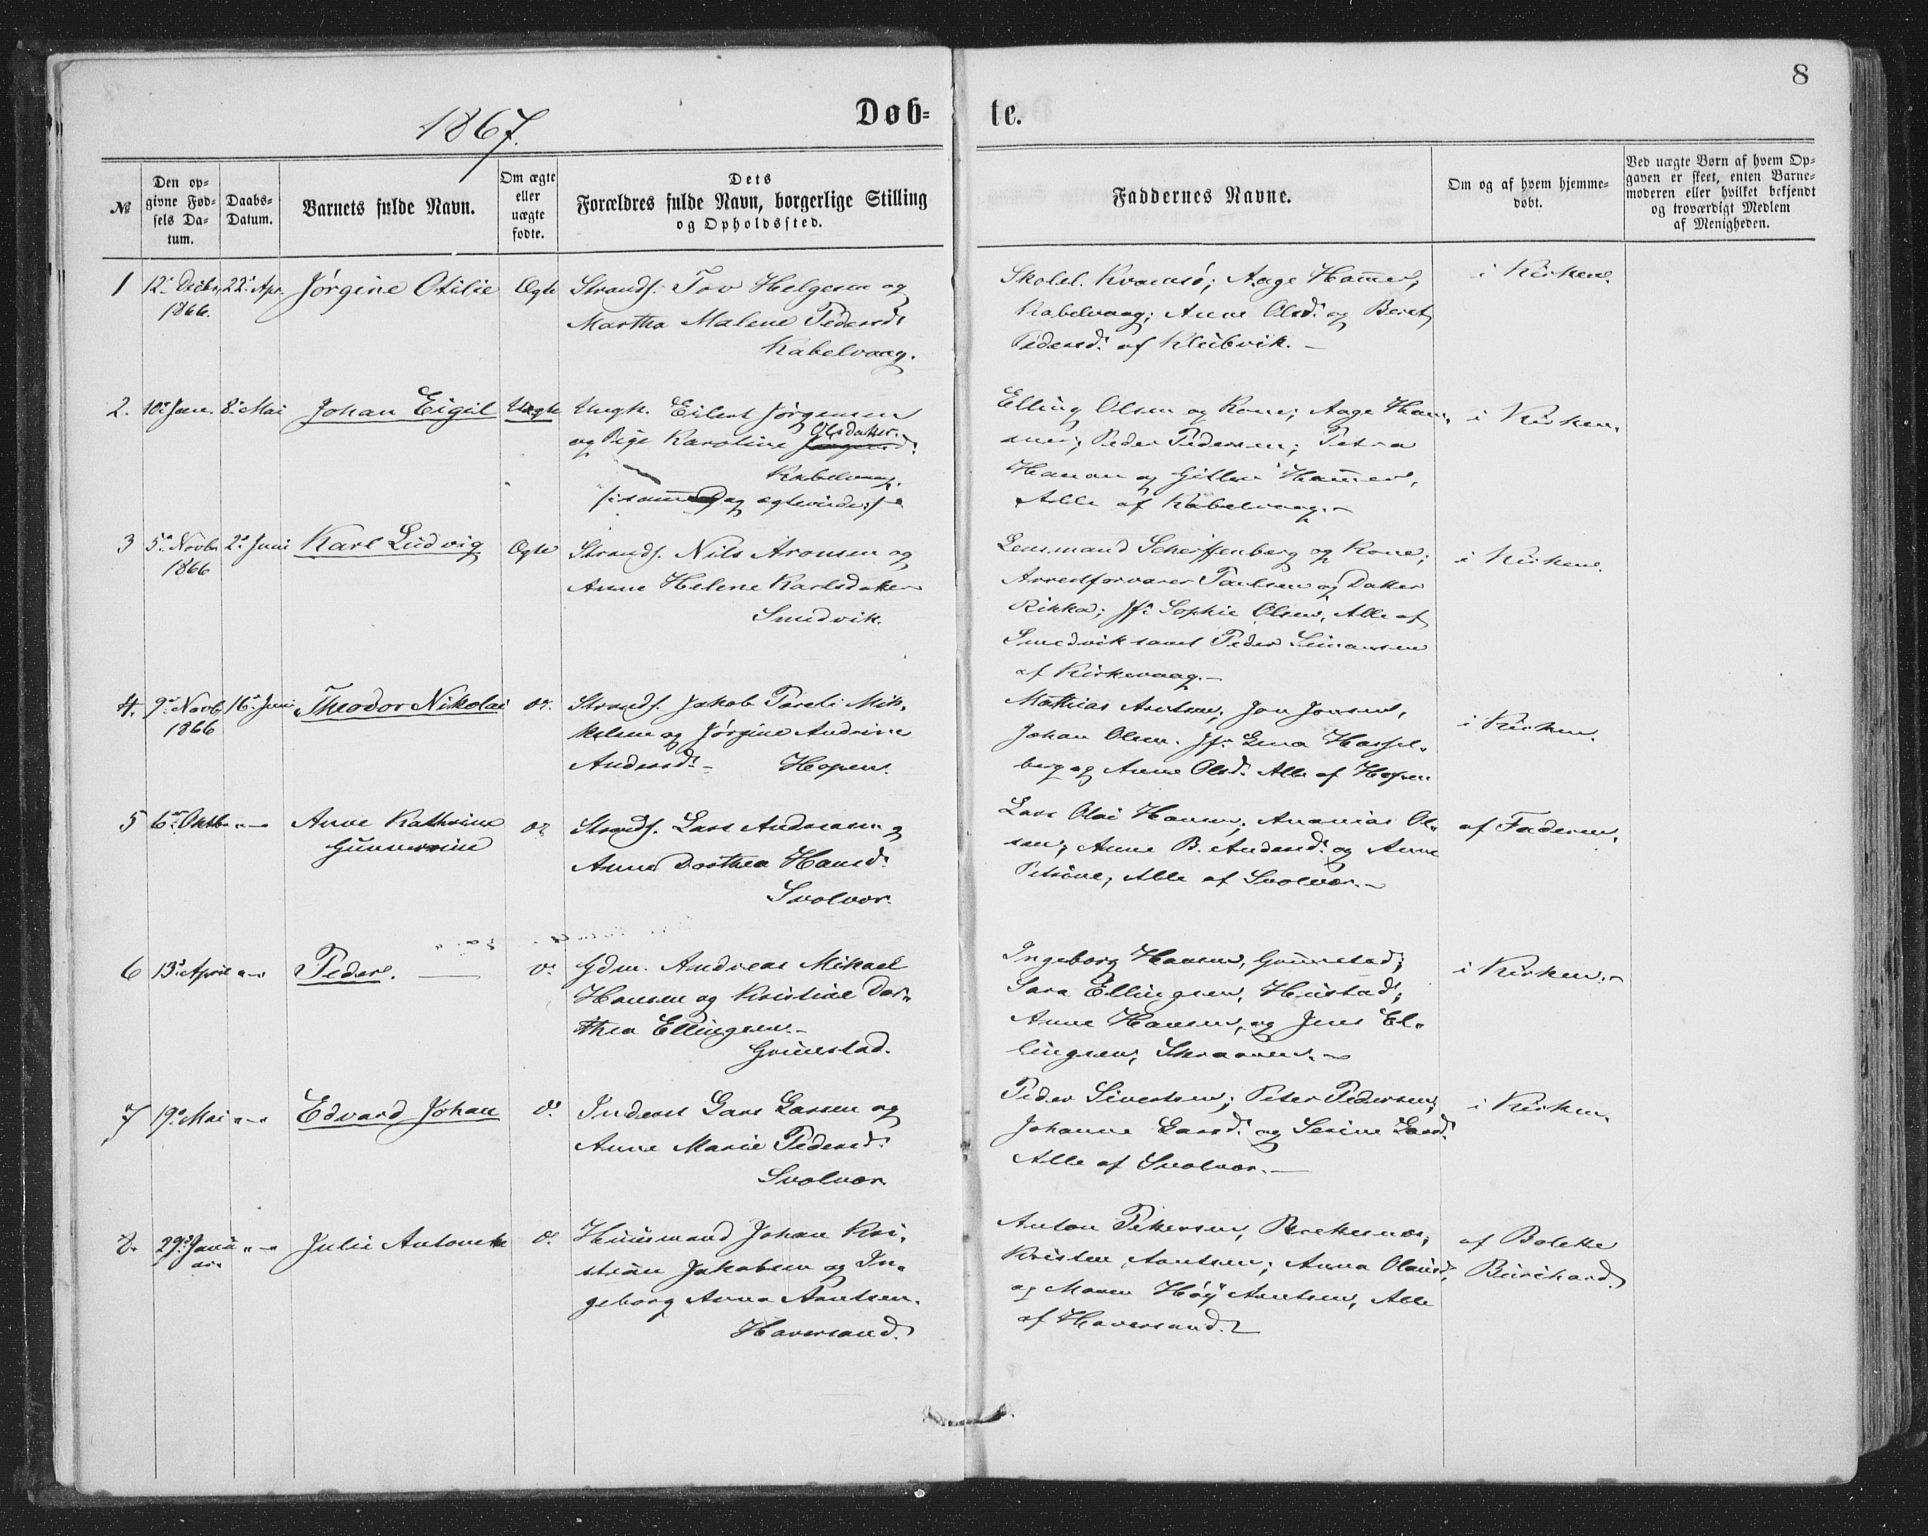 8
1867.
Døb-
te.
№
Den opgivne Fødsels Datum.
Daabs-Datum.
Barnets fulde Navn.
Om ægte eller uægte fødte.
Dets Forældres fulde Navn, borgerlige Stilling og Opholdssted.
Faddernes Navne.
Om og af hvem hjemmedøbt.
Ved uægte Børn af hvem Opgaven er skeet, enten Barnemoderen eller hvilket bekjendt og troværdigt Medlem af Menigheden.
1 12te Decbr. 22de Apr. Jørgine Otilie Ægte Strands. Tov Helgesen og
1866. Martha Malene Pedersd.
Kabelvaag.
Skolel. Kvamsø; Aage Hammer,
Kabelvaag; Anne Olsd. og Beret
Pedersd. af Kleibvik. —
i Kirken.
2. 10de Jan. 8de Mai Johan Eigil Uægte Ungk. Eilert Jørgensen
og Pige Karoline Olsdatter.
Kabelvaag.
Elling Olsen og Kone; Aage Ham-
mer; Peder Pedersen; Petra
Hanan og Gitlene Hammer,
Alle af Kabelvaag. —
i Kirken.
3 5te Novbr. 2den Juni Karl Ludvig Ægte Strands. Nils Aronsen og
1866 Anne Helene Karlsdatter
Smedvik.
Lensmand Scheffenberg og Kone;
Arrestforvarer Paulsen og Datter
Rikka; Jfr. Sophie Olsen, Alle af
Smedvik samt Peder Simonsen
af Kirkevaag. —
i Kirken.
4. 9de Novbr. 16de Juni Theodor Nikolai do. Strands. Jakob Pareli Mik-
1866 kelsen og Jørgine Andrine
Andersd. — Hopen.
Mathias Arntsen; Jon Jonsen,
Johan Olsen. Jfr. Lena Hassel-
berg og Anne Olsd. Alle af Hopen
i Kirken.
5 6te Oktbr. "—" Anne Kathrine do. Strands. Lars Andreasen og
Gunnerine Anne Dorthea Hansd.
Svolvær.
Lars Olai Hansen; Ananias Ol-
sen; Anne B. Andersd. og Anne
Petrine, Alle af Svolvær. —
af Faderen.
6 13de April "—" Peder. — do. Gdm. Andreas Mikael
Hansen og Kristine Dor-
thea Ellingsen. —
Grimstad.
Ingeborg Hansen, Grimstad;
Sara Ellingsen, Hustad;
Anne Hansen, og Jens El-
lingsen, Skraaven. —
i Kirken. —
7 19de Mai "—" Edvard Johan do. Inderst Lars Larsen og
Anne Marie Pedersd.
Svolvær.
Peder Sivertsen; Peter Pedersen;
Johanne Larsd. og Serine Larsd.
Alle af Svolvær. —
i Kirken.
8. 29de Janu- "—" Julie Antonette do. Huusmand Johan Kri-
ar stian Jakobsen og In-
geborg Anna Arntsen.
Haversand.
Anton Petersen, Brekesnæs;
Kristen Arntsen; Anna Olausd.
og Maren Høy Arntsen, Alle
af Haversand. —
af Bolette
Burchard.